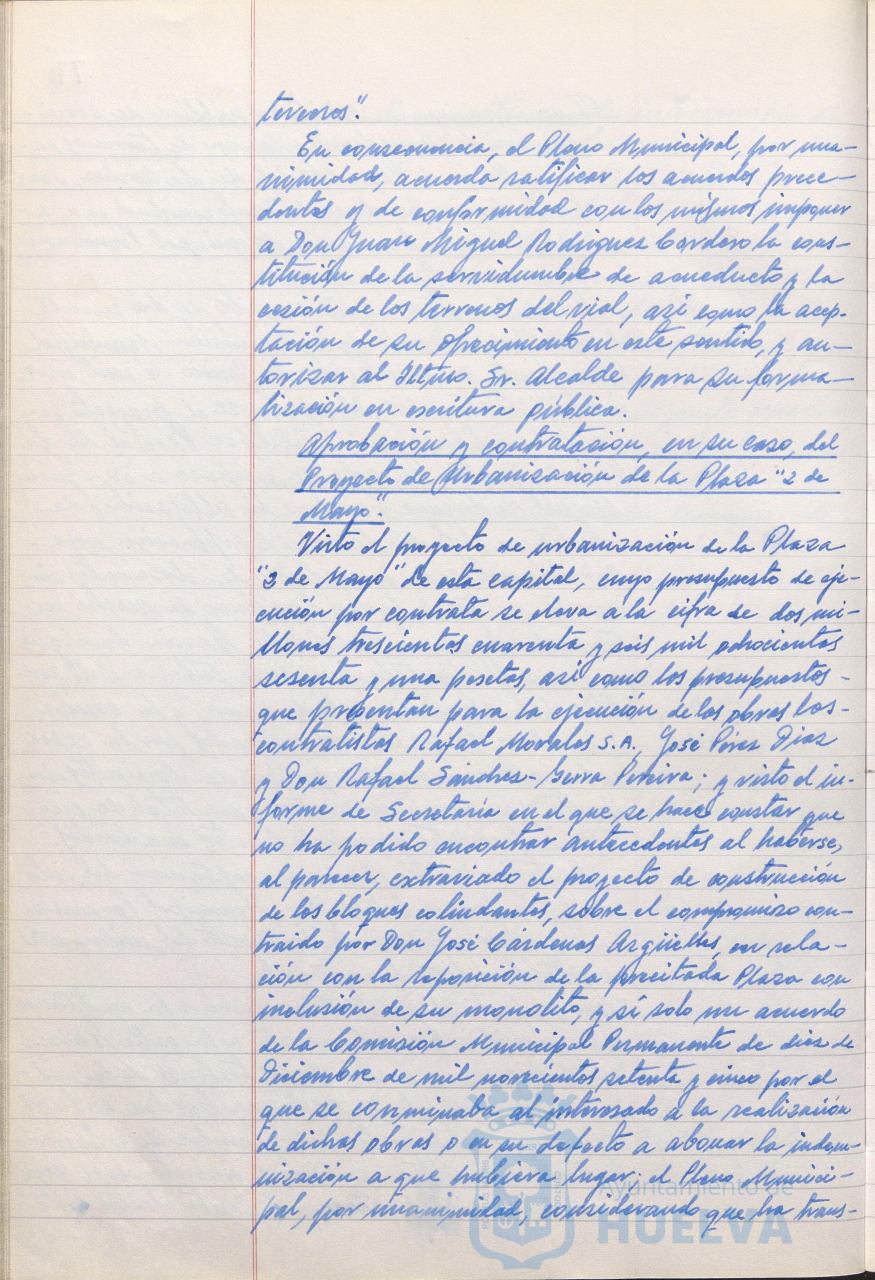 terceros".
En consecuencia, el Pleno Municipal, por una-
nimidad, acuerda ratificar los acuerdos prece-
dentes y de conformidad con los mismos imponer
a Don Juan Miguel Rodriguez Cordero la cons-
titución de la servidumbre de acueducto y la
cesión de los terrenos del vial, asi como la acep-
tación de su ofrecimiento en este sentido, y au-
torizar al Iltmo. Sr. Alcalde para su forma-
lización en escritura pública.
Aprobación y contratación, en su caso, del
Proyecto de Urbanización de la Plaza "2 de
Mayo".
Visto el proyecto de urbanización de la Plaza
"2 de Mayo" de esta capital, cuyo presupuesto de eje-
cución por contrata se eleva a la cifra de dos mi-
llones trescientas cuarenta y seis mil ochocientas
sesenta y una pesetas, asi como los presupuestos
que presentan para la ejecución de las obras los
contratistas Rafael Morales S.A., José Pérez Diaz
y Don Rafael Sánchez-Serra Pereira; y visto el in-
forme de Secretaría en el que se hace constar que
no ha podido encontrar antecedentes al haberse,
al parecer, extraviado el proyecto de construcción
de los bloques colindantes, sobre el compromiso con-
traido por Don José Cárdenas Argüelles, en rela-
ción con la reposición de la precitada Plaza con
inclusión de su monolito, y sí solo un acuerdo
de la Comisión Municipal Permanente de diez de
Diciembre de mil novecientos setenta y cinco por el
que se conminaba al interesado a la realización
de dichas obras o en su defecto a abonar la indem-
nización a que hubiera lugar; el Pleno Munici-
pal, por unanimidad, considerando que ha trans-
Ayuntamiento de
HUELVA